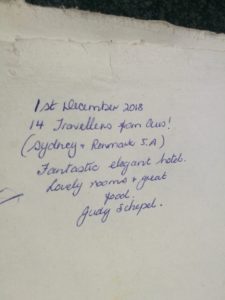 1st December 2018
14 Travellers from Aus!
(Sydney + Renmark S.A)
Fantastic elegant hotel.
Lovely rooms + great
food.
Judy Schepel.